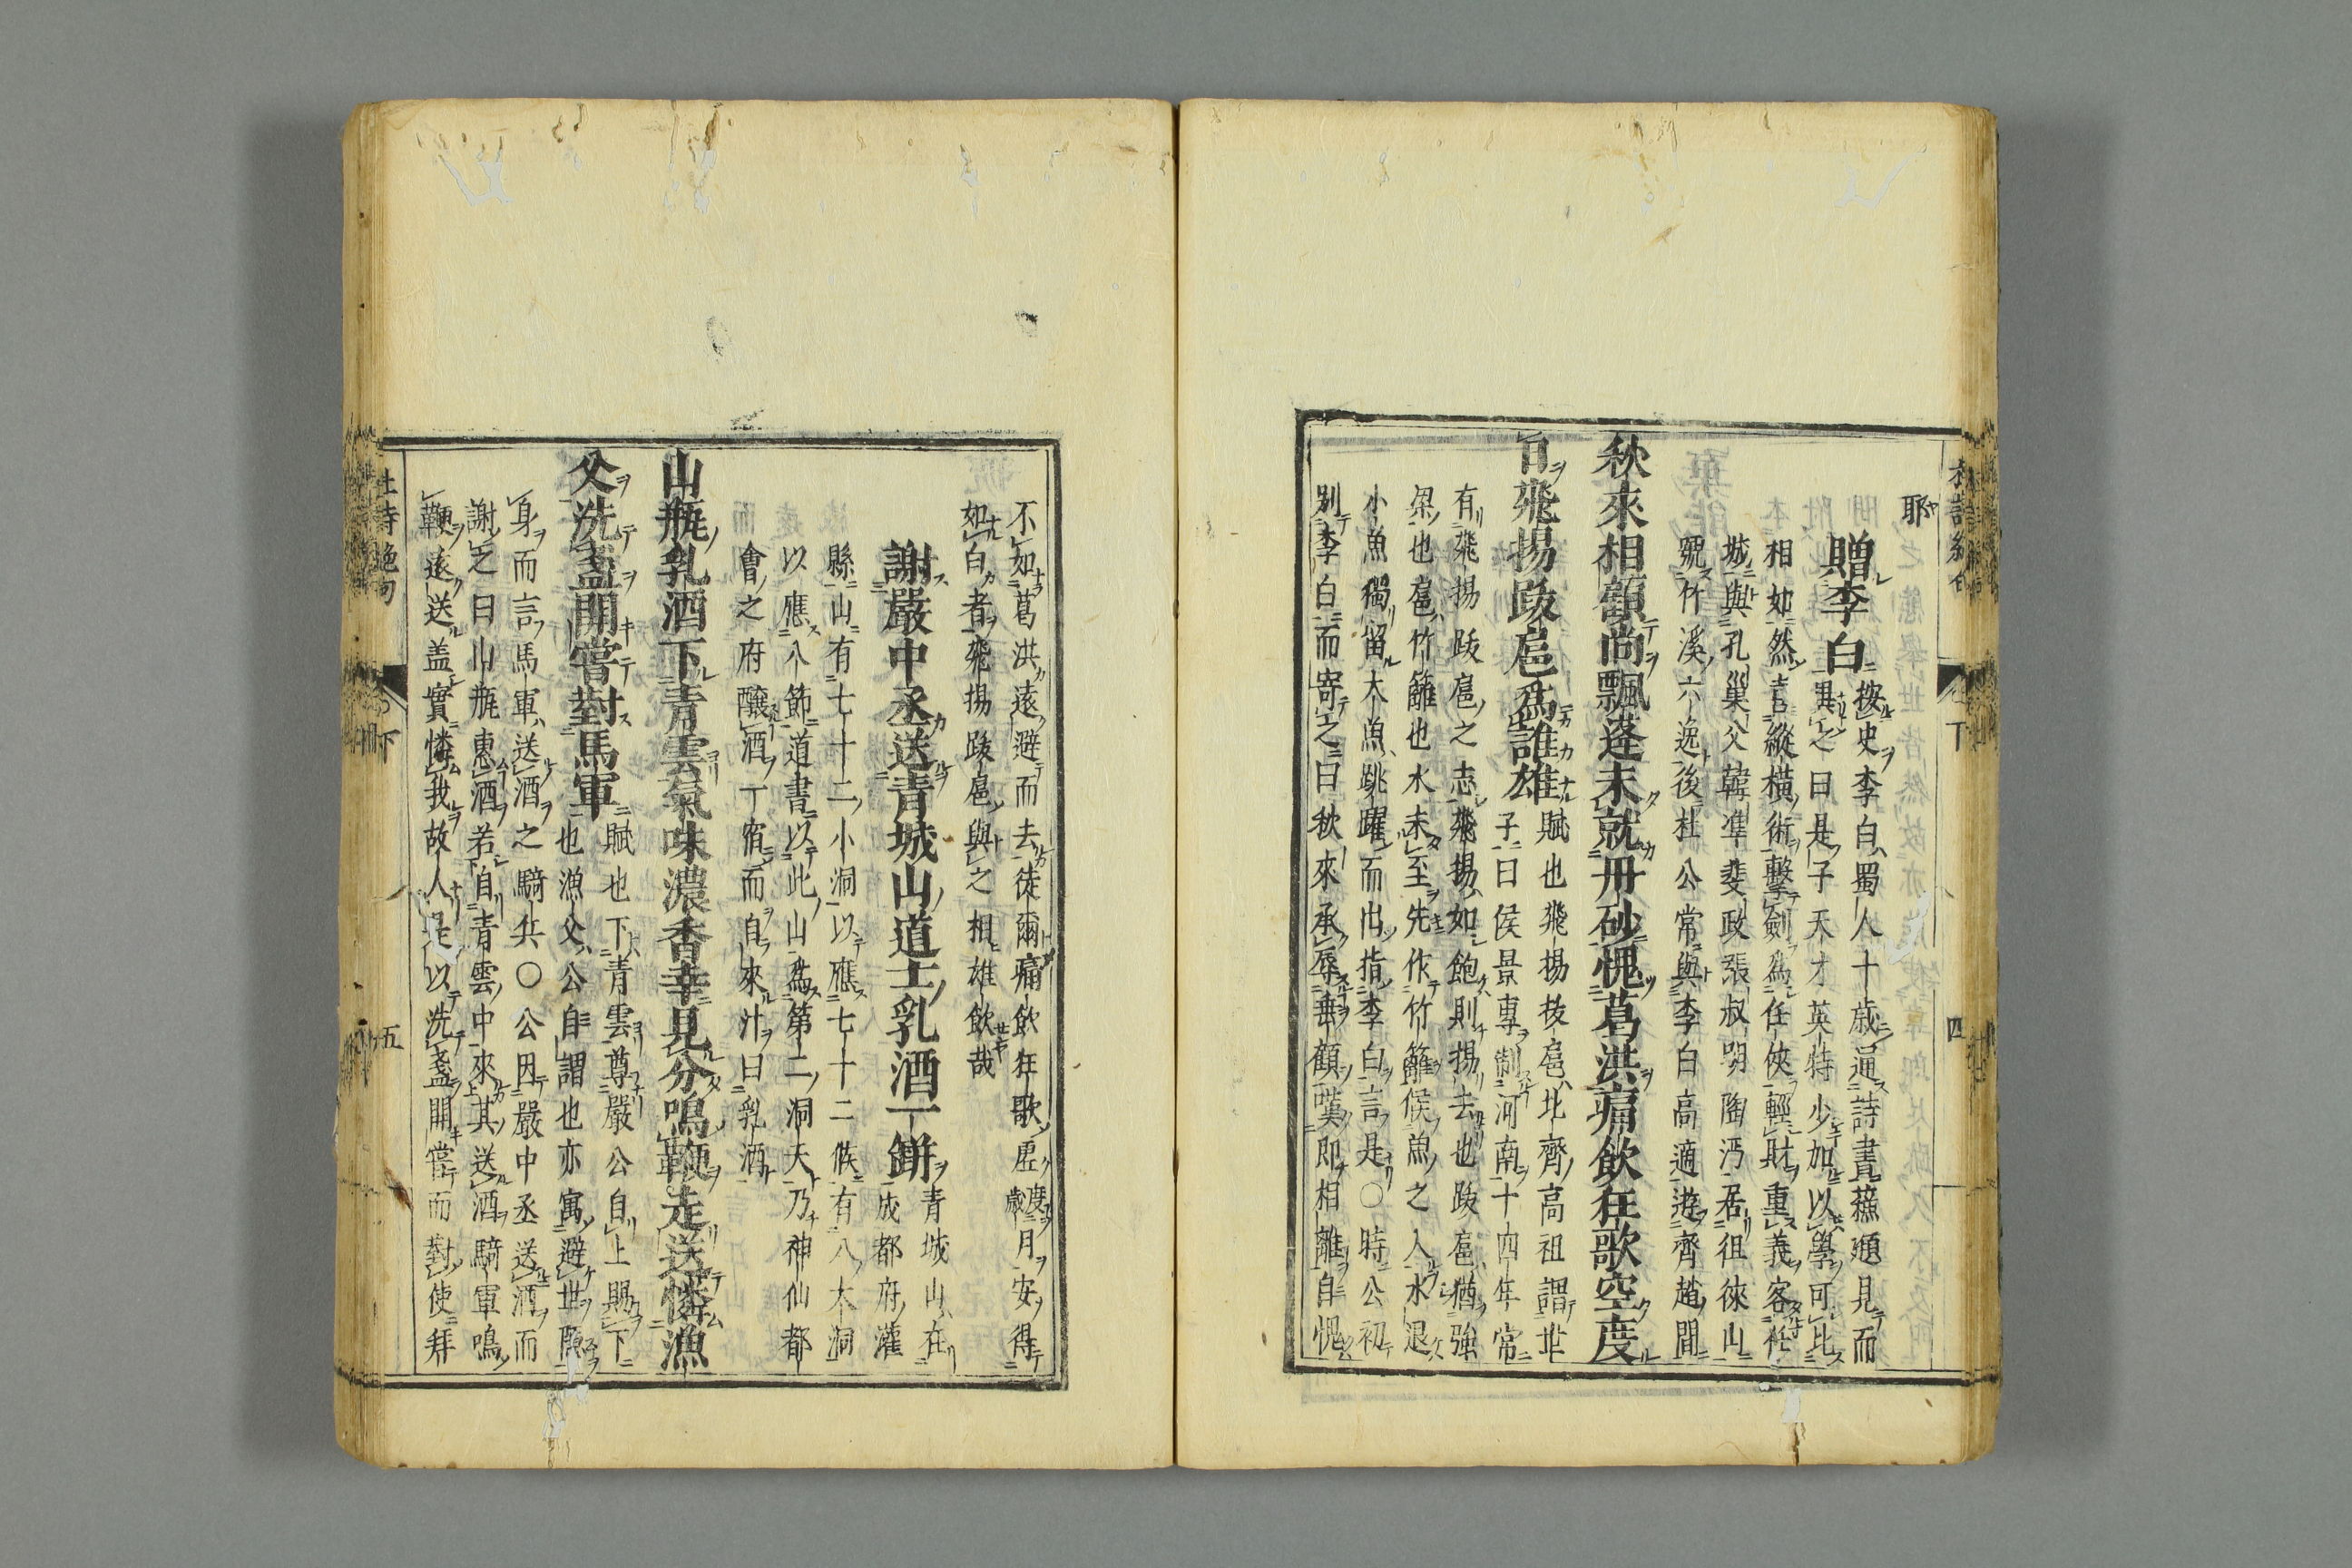 耶
贈李白
按史李白蜀人十歲通詩書蘓頲見而
異之曰是子天才英特少加以學可比
相如然喜縱橫術擊劍爲任俠輕財重義客任
城與孔巢父韓準斐政張叔明陶沔居徂徠山
號竹溪六逸後杜公常與李白高適遊齊趙間
秋來相顧尚飄蓬未就丹砂愧葛洪痛飲狂歌空度
日飛揚跋扈爲誰雄
賦也飛揚抜扈北齊高祖謂世
子曰侯景專制河南十四年常
有飛揚跋扈之志飛揚如飽則揚去也跋扈猶強
梁也扈竹籬也水未至先作竹籬候魚之入水退
小魚獨留大魚跳躍而出指李白言是○時公初
別李白而寄之曰秋來承辱垂顧嘆即相離自愧
不如葛洪遠避而去徒爾痛飲狂歌虛度歲月安得
如白者飛揚跋扈與之相雄飲哉
謝嚴中丞送青城山道士乳酒一缾
青城山在
成都府灌
縣山有七十二小洞以應七十二候有八大洞
以應八節道書以此山爲第二洞天乃神仙都
會之府釀酒一宿而自來汁曰乳酒
山瓶乳酒下青雲氣味濃香幸見分鳴鞭走送憐漁
父洗盞開嘗對馬軍
賦也下青雲尊嚴公自上賜下
也漁父公自謂也亦寓避世隱
身而言馬軍送酒之騎兵○公因嚴中丞送酒而
謝之曰山瓶惠酒若自青雲中來其送酒騎軍鳴
鞭遠送盖實憐我故人是以洗盞開嘗而對使拜
杜詩絶句
下
四
杜詩絶句
下
五